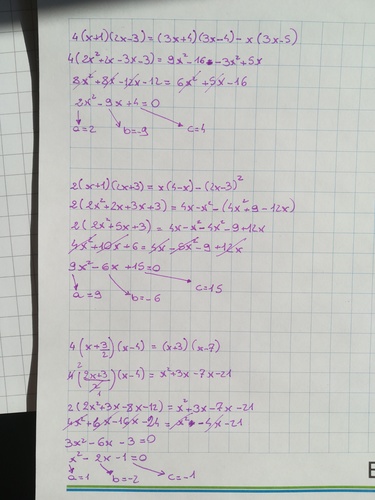 4(x+1)(2x-3) = (3x+4)(3x-4) - x(3x-5)
4(2x²+2x-3x-3) = 9x²-16 -3x²+5x
8x²+8x-12x-12 = 6x²+5x-16
2x²-9x+4=0
a=2 b=-9 c=4
2(x+1)(2x+3) = x(4-x) - (2x-3)²
2(2x²+2x+3x+3) = 4x-x²-(4x²+9-12x)
2(2x²+5x+3) = 4x-x²-4x²-9+12x
4x²+10x+6 = 4x-5x²-9+12x
9x²-6x+15=0
a=9 b=-6 c=15
4(x+3/2)(x-4) = (x+3)(x-7)
4²(2x+3/2₁)(x-4) = x²+3x-7x-21
2(2x²+3x-8x-12) = x²+3x-7x-21
4x²+6x-16x-24 = x²-4x-21
3x²-6x-3=0
x²-2x-1=0
a=1 b=-2 c=-1